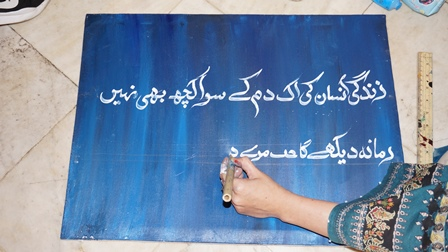 زندگی انسان کی اک دم کے سوا کچھ بھی نہیں
زمانہ دیکھے گا جب مرے د